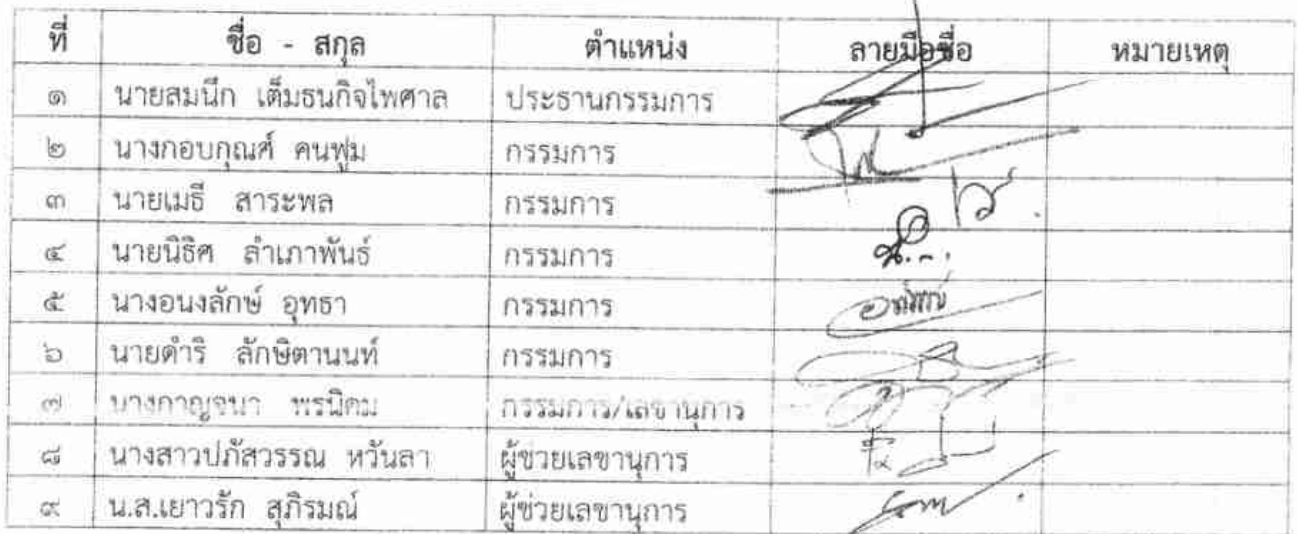 ที่ ชื่อ - สกุล ตำแหน่ง ลายมือชื่อ หมายเหตุ
๑ นายสมนึก เต็มธนกิจไพศาล ประธานกรรมการ
๒ นางกอบกุณศ์ คนฟูม กรรมการ
๓ นายเมธี สาระพล กรรมการ
๔ นายนิธิศ ลำเภาพันธ์ กรรมการ
๕ นางอนงลักษ์ อุทธา กรรมการ
๖ นายดำริ ลักษิตานนท์ กรรมการ
๗ นางกาญจนา พรนิคม กรรมการ/เลขานุการ
๘ นางสาวปภัสวรรณ หวันลา ผู้ช่วยเลขานุการ
๙ น.ส.เยาวรัก สุภิรมณ์ ผู้ช่วยเลขานุการ